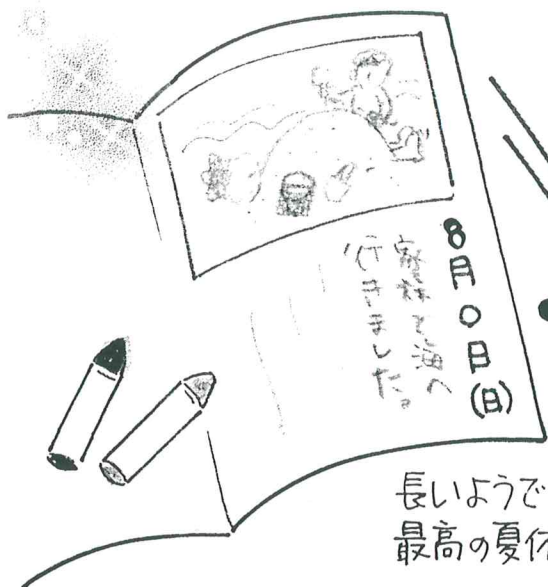 8月○日(日)
家族で海へ
行きました。
長いようで
最高の夏休